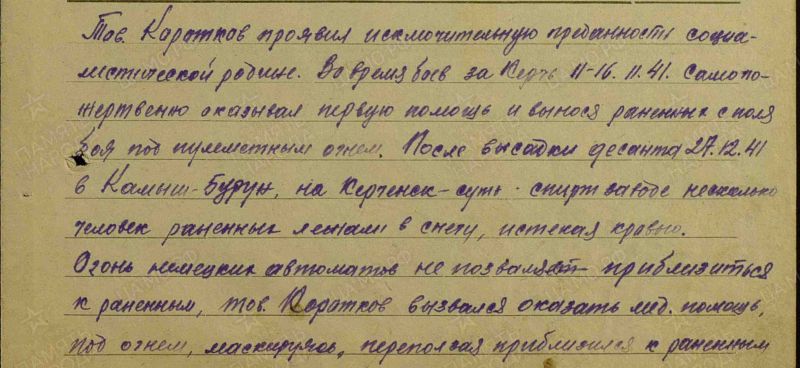 Тов. Каратков проявил исключительную преданность социа-
листической родине. Во время боев за Керчь 11-16.11.41. Самопо-
жертвенно оказывал первую помощь и вынося раненных с поля
боя под пулеметным огнем. После высадки десанта 27.12.41
в Камыш-Бурун, на Керченск- несколько
человек раненных лежали в снегу, истекая кровью.
Огонь немецких автоматов не позволял приблизиться
к раненным, тов. Каратков вызвался оказать мед. помощь,
под огнем, маскируясь, переползая приблизился к раненным